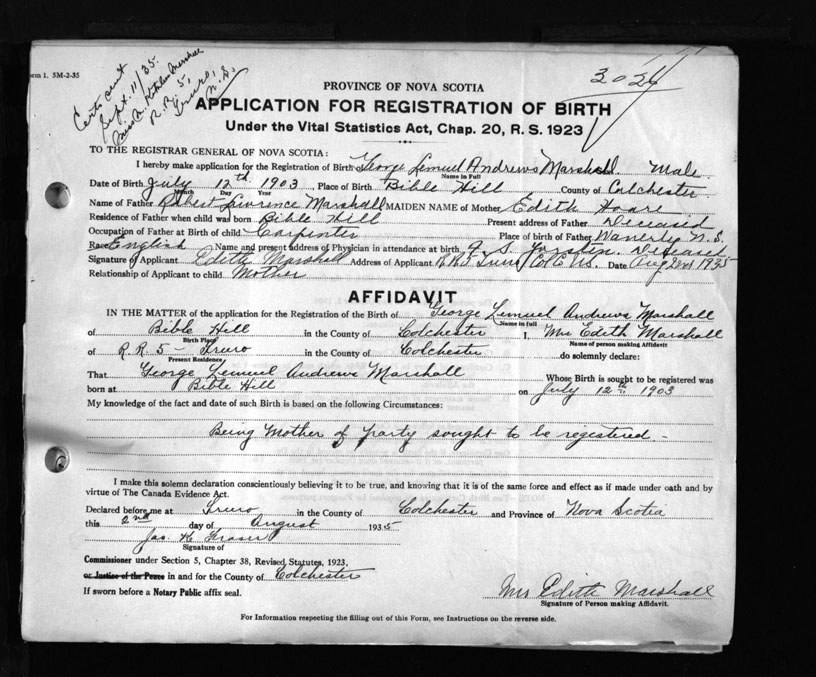 orm 1. 5M-2-35
Certs sent
Sept. 11/35.
R.R. 5,
Truro,
N.S.
3026
PROVINCE OF NOVA SCOTIA
APPLICATION FOR REGISTRATION OF BIRTH
Under the Vital Statistics Act, Chap. 20, R. S. 1923
TO THE REGISTRAR GENERAL OF NOVA SCOTIA:
I hereby make application for the Registration of Birth George Lemuel Andrews Marshall. Male.
Name in Full
Date of Birth July 12th 1903, Place of Birth Bible Hill County of Colchester
Month Day Year
Name of Father Robert Lawrence Marshall MAIDEN NAME of Mother Edith Hoare
Residence of Father when child was born Bible Hill Present address of Father Deceased
Occupation of Father at Birth of child Carpenter Place of Birth of Father Waverly N.S.
Race English Name and present address of Physician in attendance at birth Deceased
Signature of Applicant Edith Marshall Address of Applicant R R 5 Truro Col Co N.S. Date Aug 2nd 1935
Relationship of Applicant to child Mother
AFFIDAVIT
IN THE MATTER of the application for the Registration of the Birth of George Lemuel Andrews Marshall
Name in full
of Bible Hill in the County of Colchester I, Mrs Edith Marshall
Birth Place Name of person making Affidavit
of R R 5 - Truro in the County of Colchester do solemnly declare:
Present Residence
That George Lemuel Andrews Marshall Whose Birth is sought to be registered was
born at Bible Hill on July 12th 1903
My knowledge of the fact and date of such Birth is based on the following Circumstances:
Being Mother of party sought to be registered -
I make this solemn declaration conscientiously believing it to be true, and knowing that it is of the same force and effect as if made under oath and by
virtue of The Canada Evidence Act.
Declared before me at Truro in the County of Colchester and Province of Nova Scotia
this 2nd day of August 1935
Jas. K. Fraser
Signature of
Commissioner under Section 5, Chapter 38, Revised Statutes, 1923,
or Justice of the Peace in and for the County of Colchester
If sworn before a Notary Public affix seal.
Mrs Edith Marshall
Signature of Person making Affidavit.
For Information respecting the filling out of this Form, see Instructions on the reverse side.